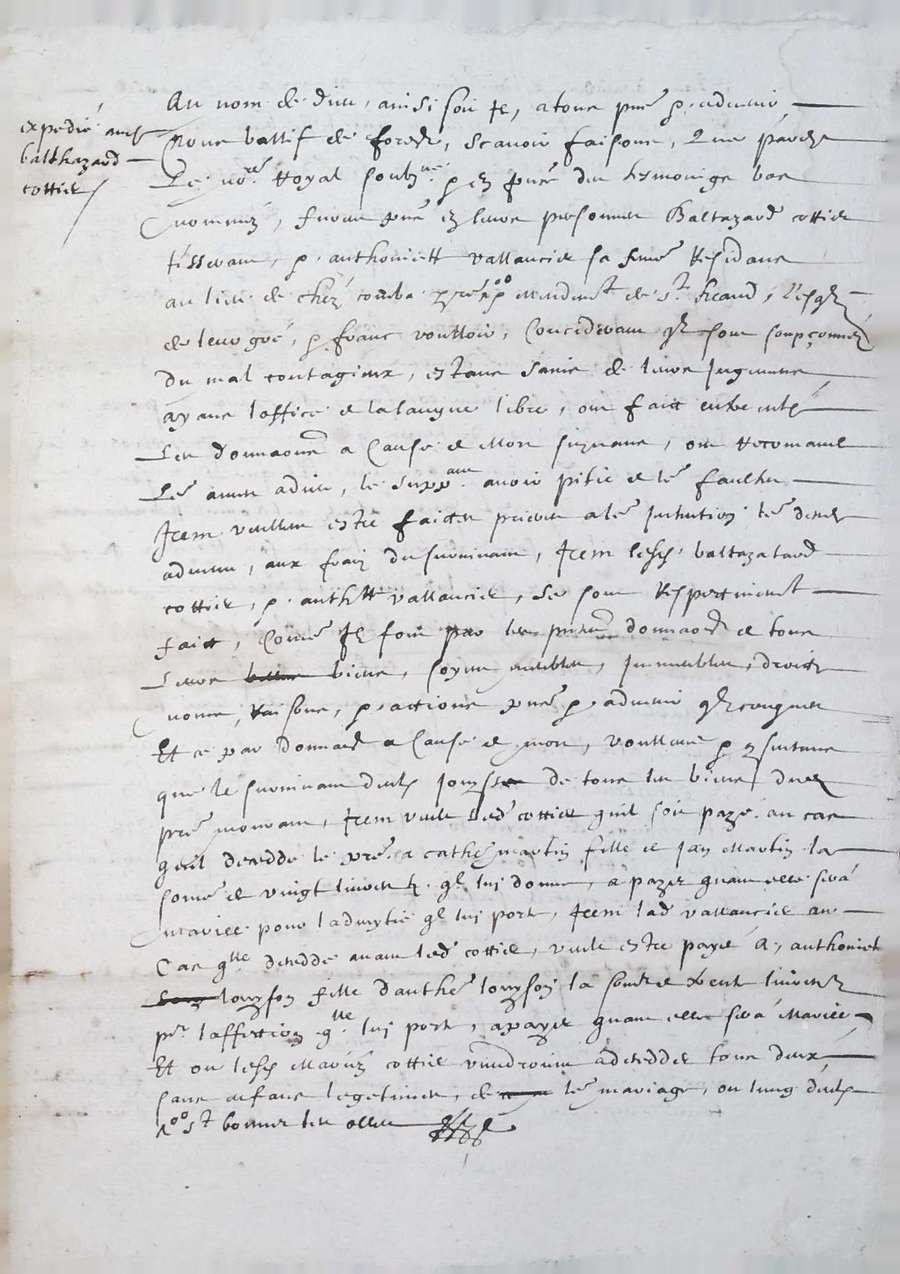 expedié aud
balthazard
cottier
Au nom de dieu, ainsi soit il, a tous pns & advenir
Nous baillif de forestz, scavoir faisons, Que pardevt
Le nore Royal soubzne & en pnce des tesmoings bas
nommés, furent pns en leurs personnes Baltazard cottier
tisserant, & anthoniette vallancier sa feme Residans
au lieu de chez comba mendemt de st heand, Lesqlz
de leur gré, & franc voulloir, Considerant qlz sont soupçonnés
du mal contagieux, estans sains de leurs Jugemens
ayans loffice de la langue libre, ont faict entre eulx
Les donnaons a Cause de Mort suyvans, ont Recomandé
Les ames a dieu, le suppant avoir pitié de les faultes
Item veullent estre faictes prieres a les Intention
a dieu, aux fraiz du survivant, Item lesds baltazard
cottier, & anthtte vallancier, se sont Respectivemt
faict, Come Ilz font par les pntes donnaon de tous
Leurs biens, soyent meubles, Immeubles, droictz
noms, Raisons, & actions pns & advenir qlzconques
Et ce par donnaon a Cause de mort, voullans &
que le survivant deulx Jouysse de tous les biens du
pre mourant, Item veult led cottier quil soit payé au cas
quil decedde le pre a cathe martin fille de Jan Martin la
some de vingt livres tz ql luy donne, a payer quant elle sera
mariee pour lamytié ql luy porte, Item lad vallancier au
Cas qlle decedde avant led cottier, veult estre payé a, anthoniette
louyson fille danthe louyson la some de vent livres
pr laffection qlle luy porte, a payer quant elle sera Mariee
Et ou lesds Mariés cottier viendroient a decedder tous deux
sans enfans legitimes, de leur mariage, ou lung deulx